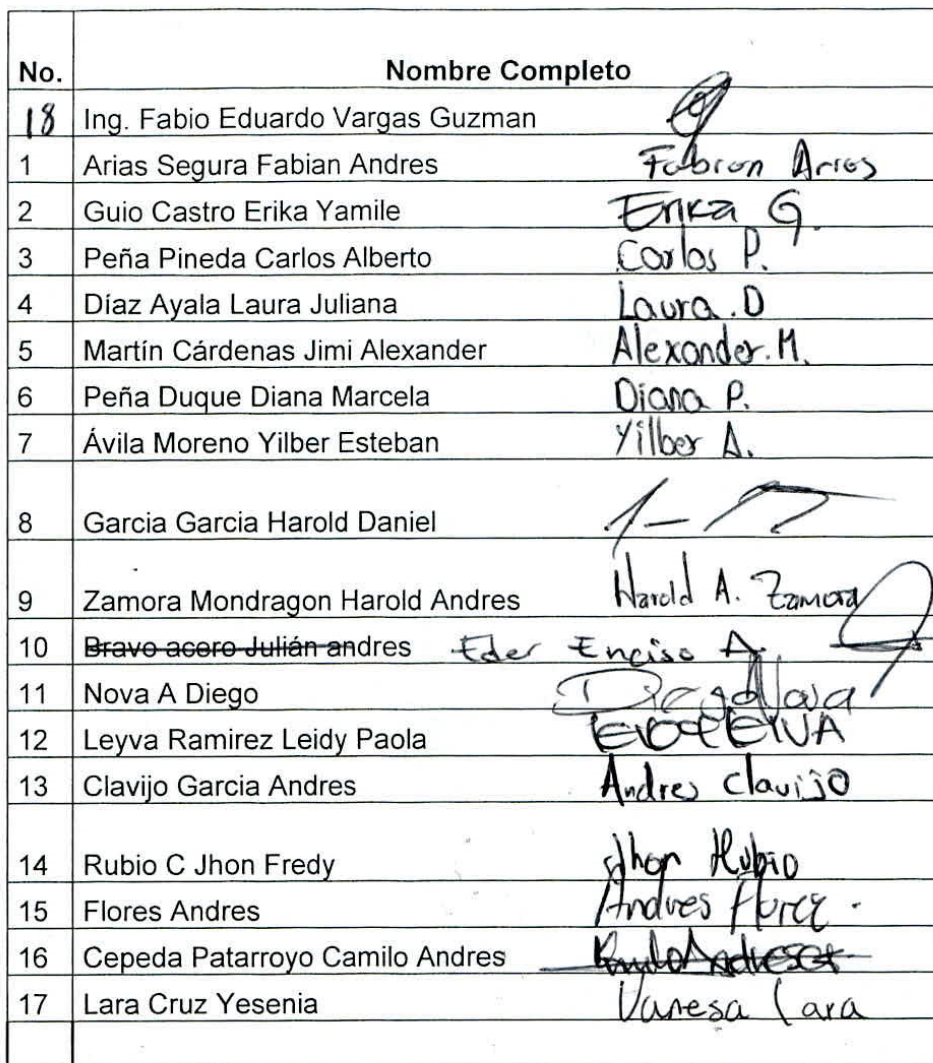 No. Nombre Completo
18 Ing. Fabio Eduardo Vargas Guzman
1 Arias Segura Fabian Andres Fabian Arias
2 Guio Castro Erika Yamile Erika G.
3 Peña Pineda Carlos Alberto Carlos P.
4 Díaz Ayala Laura Juliana Laura.D
5 Martín Cárdenas Jimi Alexander Alexander.M.
6 Peña Duque Diana Marcela Diana P.
7 Ávila Moreno Yilber Esteban Yilber A.
8 Garcia Garcia Harold Daniel
9 Zamora Mondragon Harold Andres Harold A. Zamora
10 Bravo acero Julián andres Eder Enciso A.
11 Nova A Diego Diego Nova
12 Leyva Ramirez Leidy Paola
13 Clavijo Garcia Andres Andres Clavijo
14 Rubio C Jhon Fredy Jhon Rubio
15 Flores Andres Andres
16 Cepeda Patarroyo Camilo Andres
17 Lara Cruz Yesenia Vanesa Lara